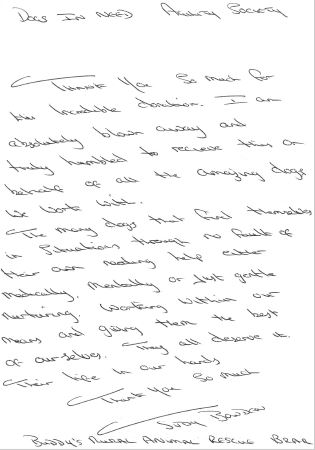 Dogs In Need Agility Society
Thank You so much for
the Incredible donation. I am
absolutely blown away and
truly humbled to recieve this on
behalf of all the amazing dogs
we work with.
The many dogs that find themselves
in situations through no fault of
their own needing help either
medically, mentally or just gentle
nurturing. Working within our
means and giving them the best
of ourselves. They all deserve it.
Their life in our hands
Thank You so much
Judy Bowden
Buddy's Mural Animal Rescue Bear